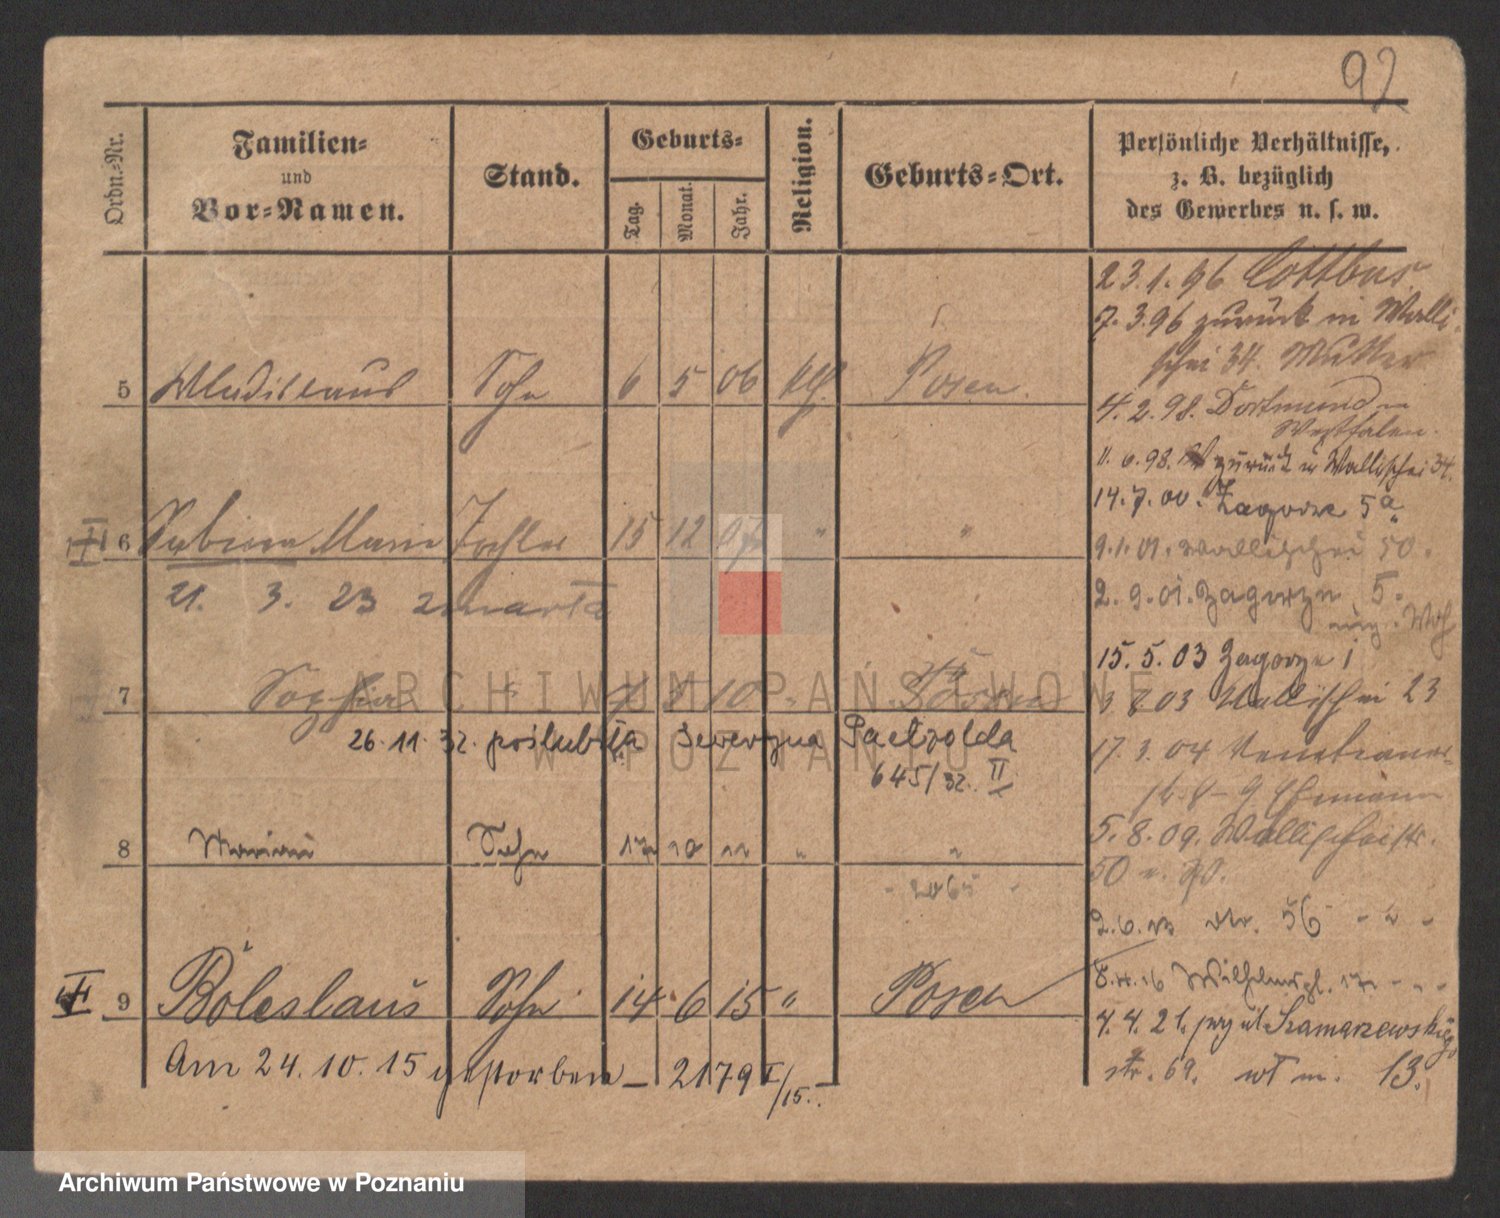 92
Ordn.-Nr.
Familien-
und
Vor-Namen.
Stand.
Geburts-
Tag.
Monat.
Jahr.
Religion.
Geburts-Ort.
Persönliche Verhältnisse,
z. B. bezüglich
des Gewerbes u. s. w.
23.1.96 Cottbus.
7.3.96 zurück in Walli-
schei 34. Mutter
5 Wladislaus Sohn 6 5 06 kth. Posen.
4.2.98. Dortmund in
Westfalen.
11.6.98. zurück in Wallischei 34.
14.7.00. Zagorze 5a
6 Sabina Marie Tochter 15 12 07 " "
9.1.01. Wallischei 50.
21. 3. 23 zmarła
2.9.01. Zagorze 5.
15.5.03 Zagorze 1
7 Sophia 5 10 " Posen
3.8.03 Wallischei 23
26.11.32. poślubiła Seweryna Paetzolda
645/32. II
17.3.04 Venetianer-
5.8.09. Wallischeistr.
8 Marian Sohn 17 10 11 " "
50
2.6.13 56
8.11.16 Wilhelmspl. 17
9 Boleslaus Sohn 14 6 15 " Posen
4.4.21. przy ul. Szamarzewskiego
Am 24.10.15 gestorben 2179 I/15.
str. 69. 13.
ARCHIWUM PAŃSTWOWE
W POZNANIU
Archiwum Państwowe w Poznaniu